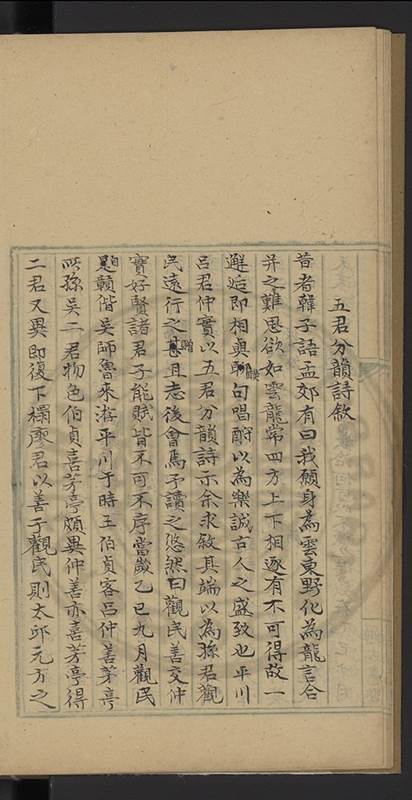 五君分韻詩敘
昔者韓子語孟郊有曰我願身為雲東野化為龍言合
并之難思欲如雲龍常四方上下相逐有不可得故一
邂逅即相與聯句唱酬以為樂誠古人之盛致也平川
呂君仲實以五君分韻詩示余求敘其端以為孫君觀
民遠行之贈且志後會焉予讀之悠然曰觀民善交仲
實好賢諸君子能賦皆不可不序當歲乙巳九月觀民
自贛偕吳師魯來游平川于時王伯貞客呂仲善芳亭
所孫吳二君物色伯貞喜芳亭頗異仲善亦喜芳亭得
二君又異即復下榻廖君以善于觀民則太邱元方之